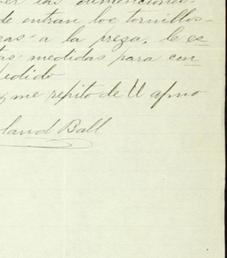 las dimenciones
de entran los tornillos
a la preza, le es
tas medidas para con
pedido
me repito de U afmo
land Ball